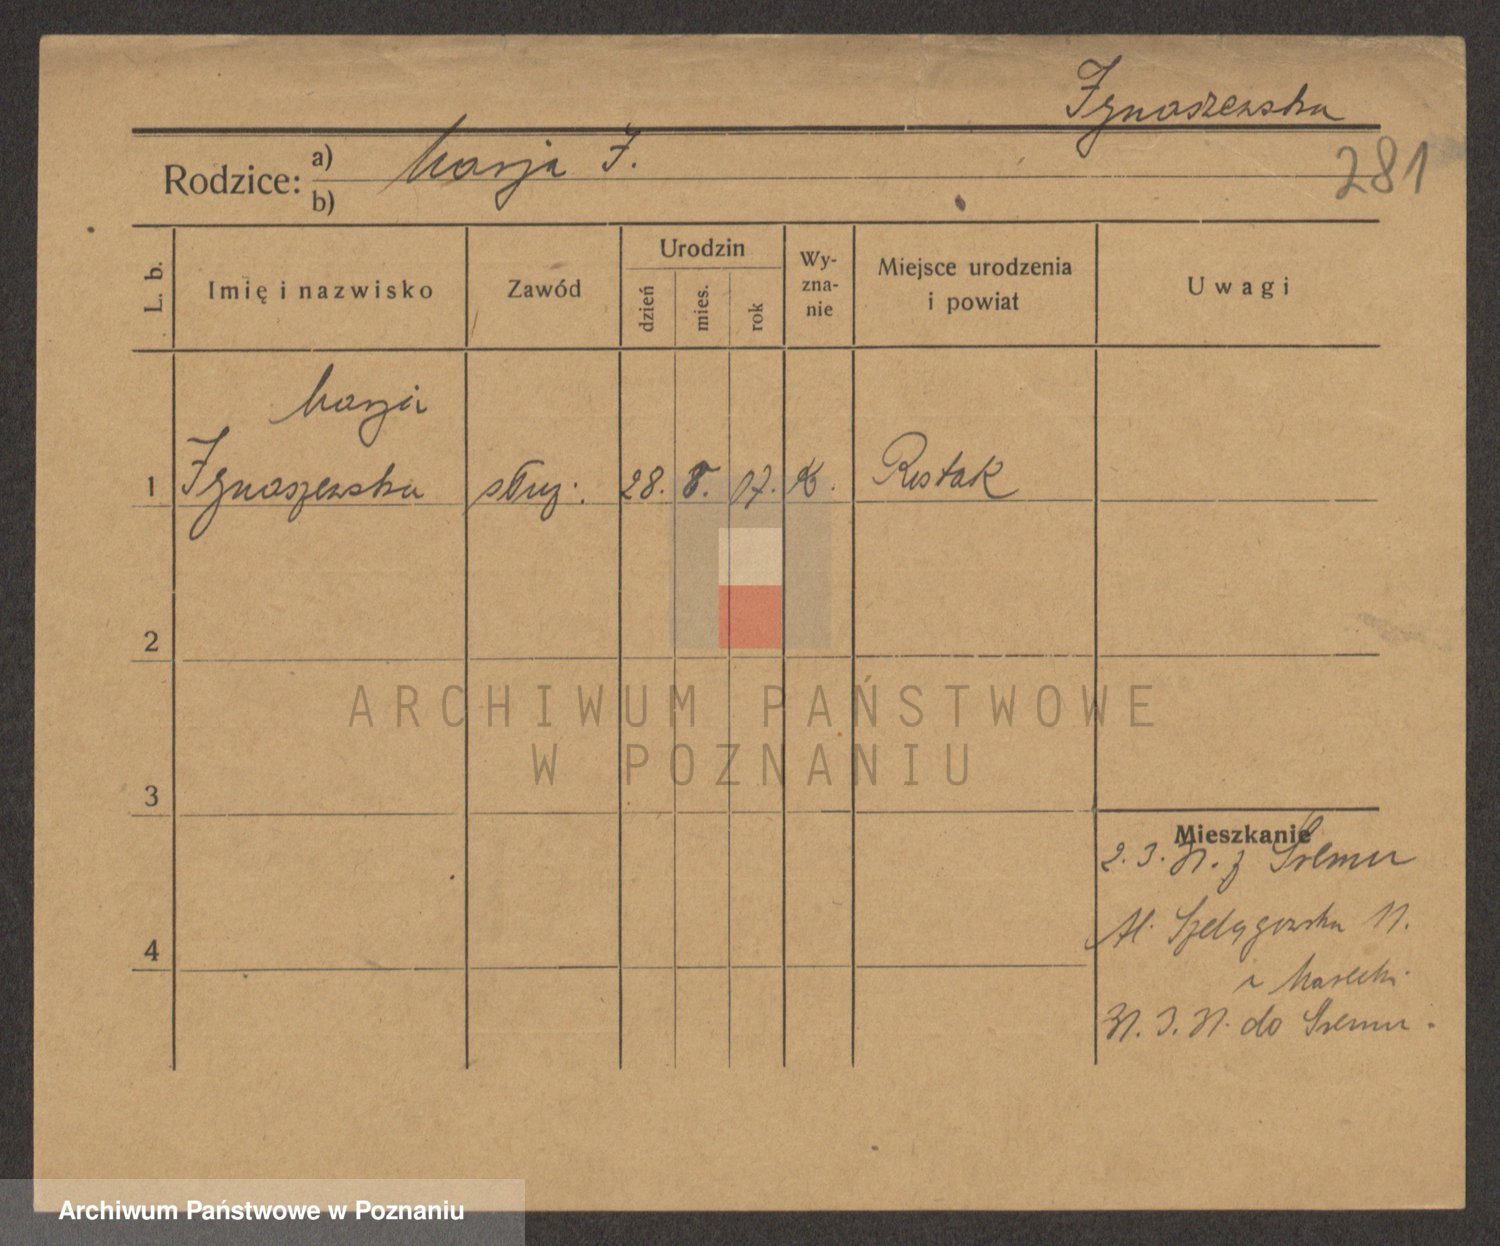 Ignaszewska
281
Rodzice: a) Marja I.
b)
L. b.
Imię i nazwisko
Zawód
Urodzin
dzień
mies.
rok
Wy-
zna-
nie
Miejsce urodzenia
i powiat
Uwagi
Marja
1 Ignaszewska służ. 28. 8. 07. K. Rostak
2
3
4
ARCHIWUM PAŃSTWOWE
W POZNANIU
Mieszkanie
2. 3. 31. z Śremu
Al. Szelągowska 11.
u Marecki
31. 3. 31. do Śremu.
Archiwum Państwowe w Poznaniu